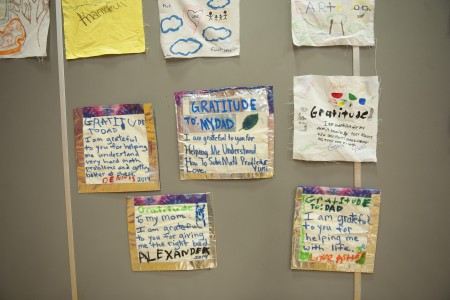 thankful
ART
GRATITUDE
TO DAD
I am grateful
to you for helping
me understand
very hard math
problems and getting
better at chess.
DENNIS 2014
GRATITUDE
TO: MY DAD
I am grateful to you for
Helping Me Understand
How To Solve Math Problems
Love, YURI
Gratitude!
Gratitude
to my mom
I am grateful
to you for giving
me the right bed.
ALEXANDER
2014
GRATITUDE
TO: DAD
I am grateful
to you for
helping me
with life.